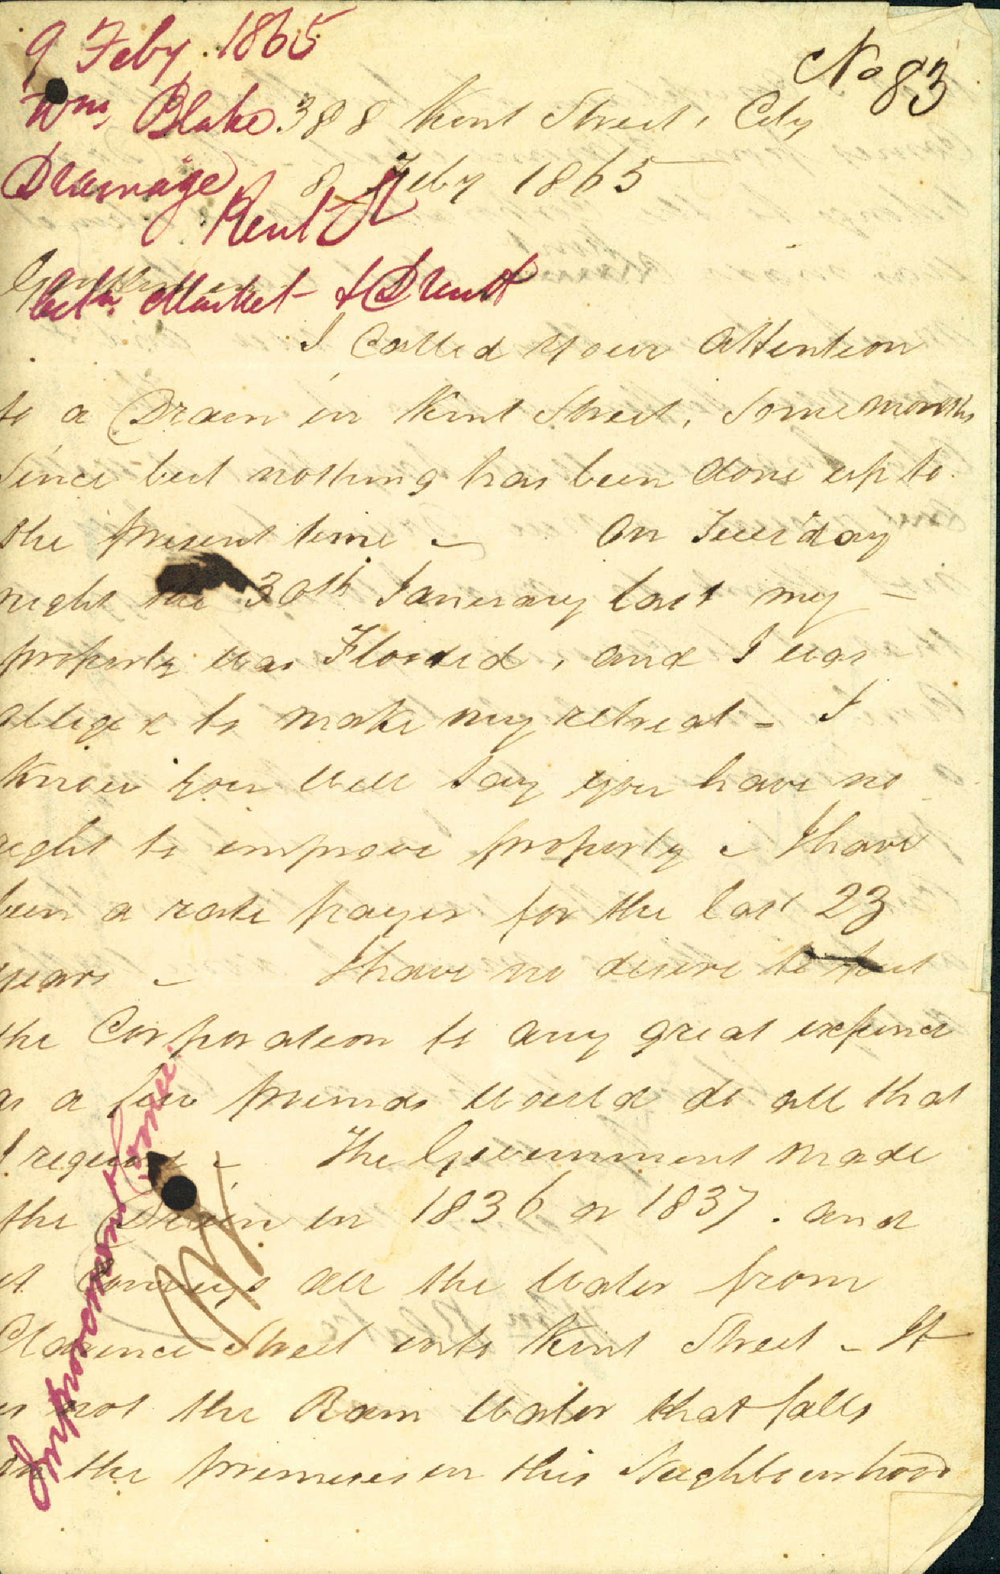 9 Feby. 1865
No 83
Wm. Blake. 388 Kent Street, City
Drainage 8 Feby 1865
Kent St
betn. Market & Druitt
Gentlemen
I Called your Attention
to a Drain in Kent Street, Some months
Since but nothing has been done up to
the present time - On Tuesday
night the 30th January last my -
property was Flooded, and I was
obliged to make my retreat - I
know you will say you have no
right to improve property - I have
been a rate payer for the last 23
years - I have no desire to put
the Corporation to any great expence
as a few pounds would do all that
I require - The Government made
the Drain in 1836 or 1837. and
it conveys all the water from
Clarence Street into Kent Street - It
is not the Rain Water that falls
on the premises in this Neighbourhood
Improvement Comee